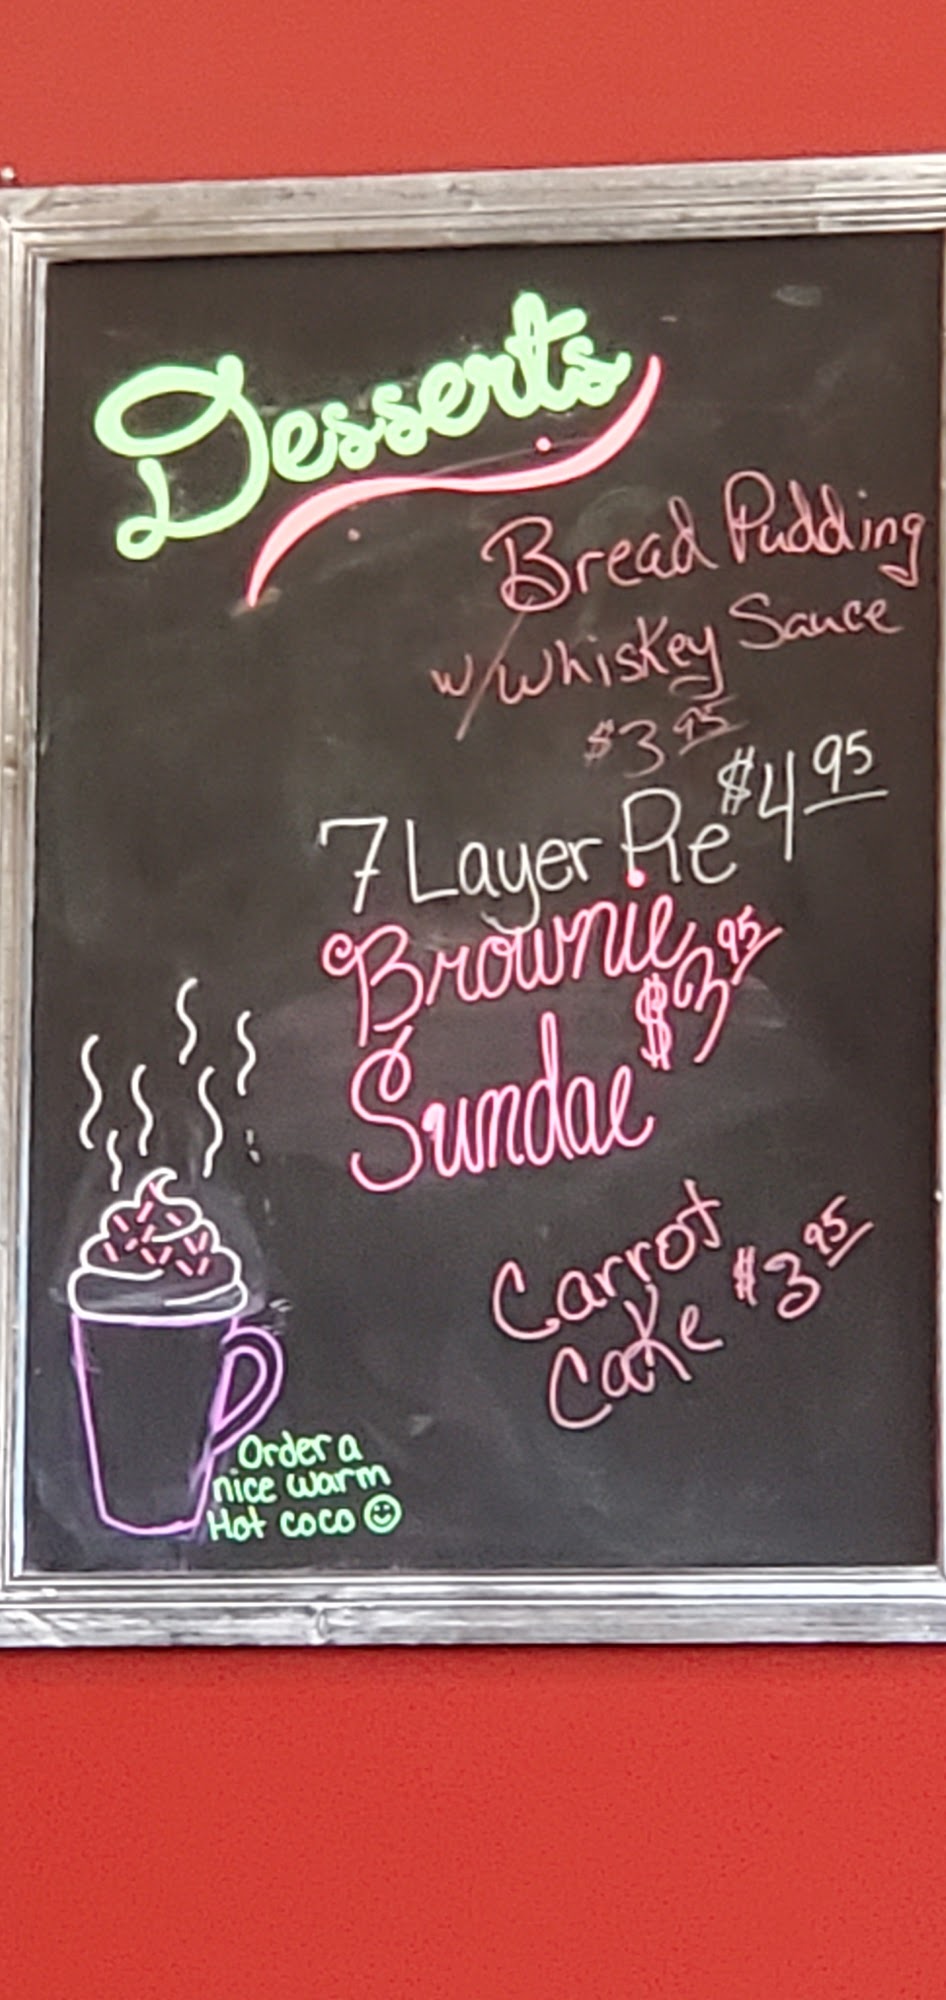 Desserts
Bread Pudding
w/Whiskey Sauce
$3.95
7 Layer Pie $4.95
Brownie $3.95
Sundae
Carrot
Cake $3.95
Order a
nice warm
Hot coco ☺